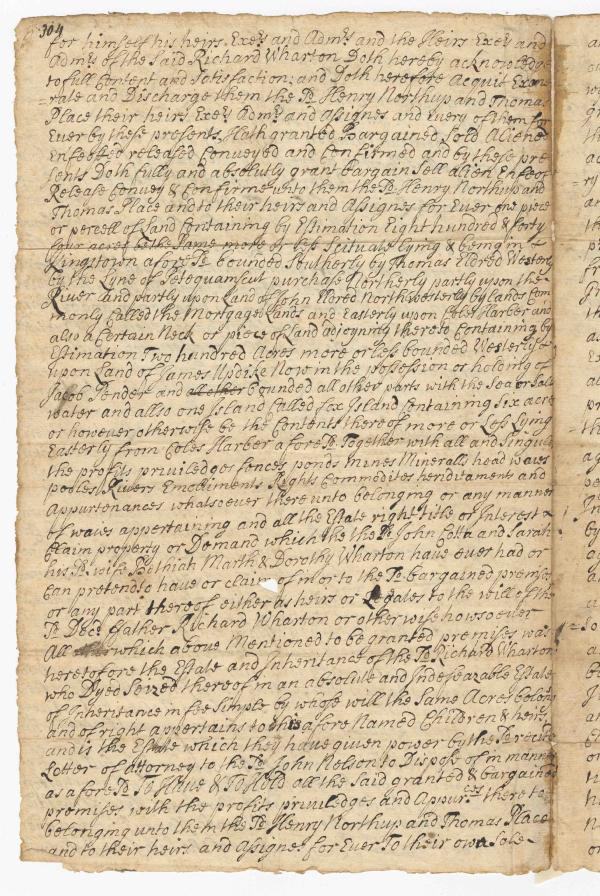 304
for himself his heirs Exe:rs and Adm:rs and the Heirs Exe:rs and
Adm:rs of the Said Richard Wharton Doth hereby acknowledge
to full Content and Satisfaction: and Doth herefore Acquit Exone
=rate and Discharge them the Sd Henry Northup and Thomas
Place their heirs Exe:rs Adm:rs and assignes and Every of them for
Ever by these presents Hath granted Bargained Sold Aliened
Enfeoffed released Conveyed and Confirmed and by these pre
sents Doth fully and absolutly grant bargain Sell alien Enfeof
Release Convey & Confirme unto them the Sd Henry Northup and
Thomas Place and to their heirs and Assignes for Ever one piece
or percell of Land Containing by Estimation Eight hundred & forty
four acres be the Same more or less Scituate lying & being in
Kingstown afore Sd bounded Southerly by Thomas Eldred Westerly
by the Lyne of Petequamscut purchase Northerly partly upon the
River and partly upon Land of John Eldred Northwesterly by Lands Com
monly Called the Mortgage Lands and Easterly upon Coles Harber and
also a Certain Neck or piece of Land adjoyning thereto Containing by
Estimation Two hundred Acres more or less bounded Westerly
upon Land of James Updike Now in the possession or holding of
Jacob Pender and all other bounded all other parts with the Sea or Salt
water and allso one Island Called fox Island Containing Six acre
or however otherwise be the Contents thereof more or Less Lying
Easterly from Coles Harber afore Sd Together with all and Singuler
the profits priviledges fences ponds mines Mineralls head wares
pooles Rivers Emollments Rights Commodites heriditaments and
Appurtonances whatsoever there unto belonging or any manner
of waves appertaining and all the Estate right title or Interest
Claim property or Demand which the the Sd John Cotta and Sarah
his Sd wife Bethiah Marth & Dorothy Wharton have ever had or
Can pretend to have or claim of in or to the Sd bargained premises
or any part thereof either as heirs or Legates to the will of the
Sd Dece father Richard Wharton or other wise howsoever
All which above Mentioned to be granted premises was
heretofore the Estate and Inheritance of the Sd Richard Wharton
who Dyed Seized thereof in an absolute and Indefeazable Estate
of Inheritance in fee Simple by whose will the Same Acres belong
and of right appertains to his afore Named Children & heirs
and is the Estate which they have given power by the Sd recited
Letter of attorney to the Sd John Nelson to Dispose of in manner
as afore Sd To Have & To Hold all the Said granted & bargained
premises with the profits priviledges and Appur:ces there to
belonging unto them the Sd Henry Northup and Thomas Place
and to their heirs and Assignes for Ever To their own Sole